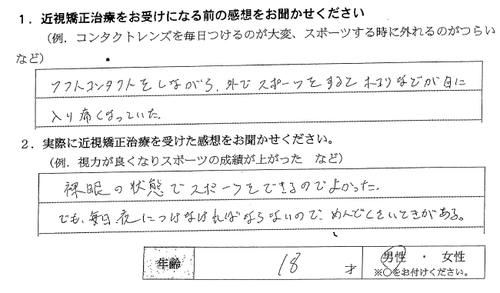 1．近視矯正治療をお受けになる前の感想をお聞かせください
(例．コンタクトレンズを毎日つけるのが大変、スポーツする時に外れるのがつらい
など)
ソフトコンタクトをしながら、外でスポーツをするとホコリなどが目に
入り痛くなっていた.
2．実際に近視矯正治療を受けた感想をお聞かせください。
(例．視力が良くなりスポーツの成績が上がった など)
裸眼の状態でスポーツをできるのでよかった.
でも、毎日夜につけなければならないので、めんどくさいときがある。
年齢 18 才 男性 ・ 女性
※○をお付けください。